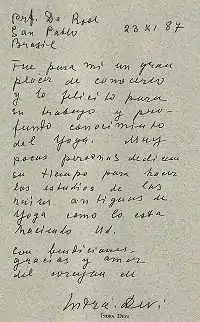 Prof. De Rose
San Pablo
Brasil
23 XI 87
Fue para mi un gran
placer de conocerlo
y lo felicito para
su trabajo y pro-
fundo conocimiento
del Yoga. Muy
pocas personas dedican
su tiempo para hacer
los estudios de las
raices antiguas de
Yoga como lo esta
haciendo Ud.
Con bendiciones,
gracias y amor
del corazon
Indra Devi
INDRA DEVI